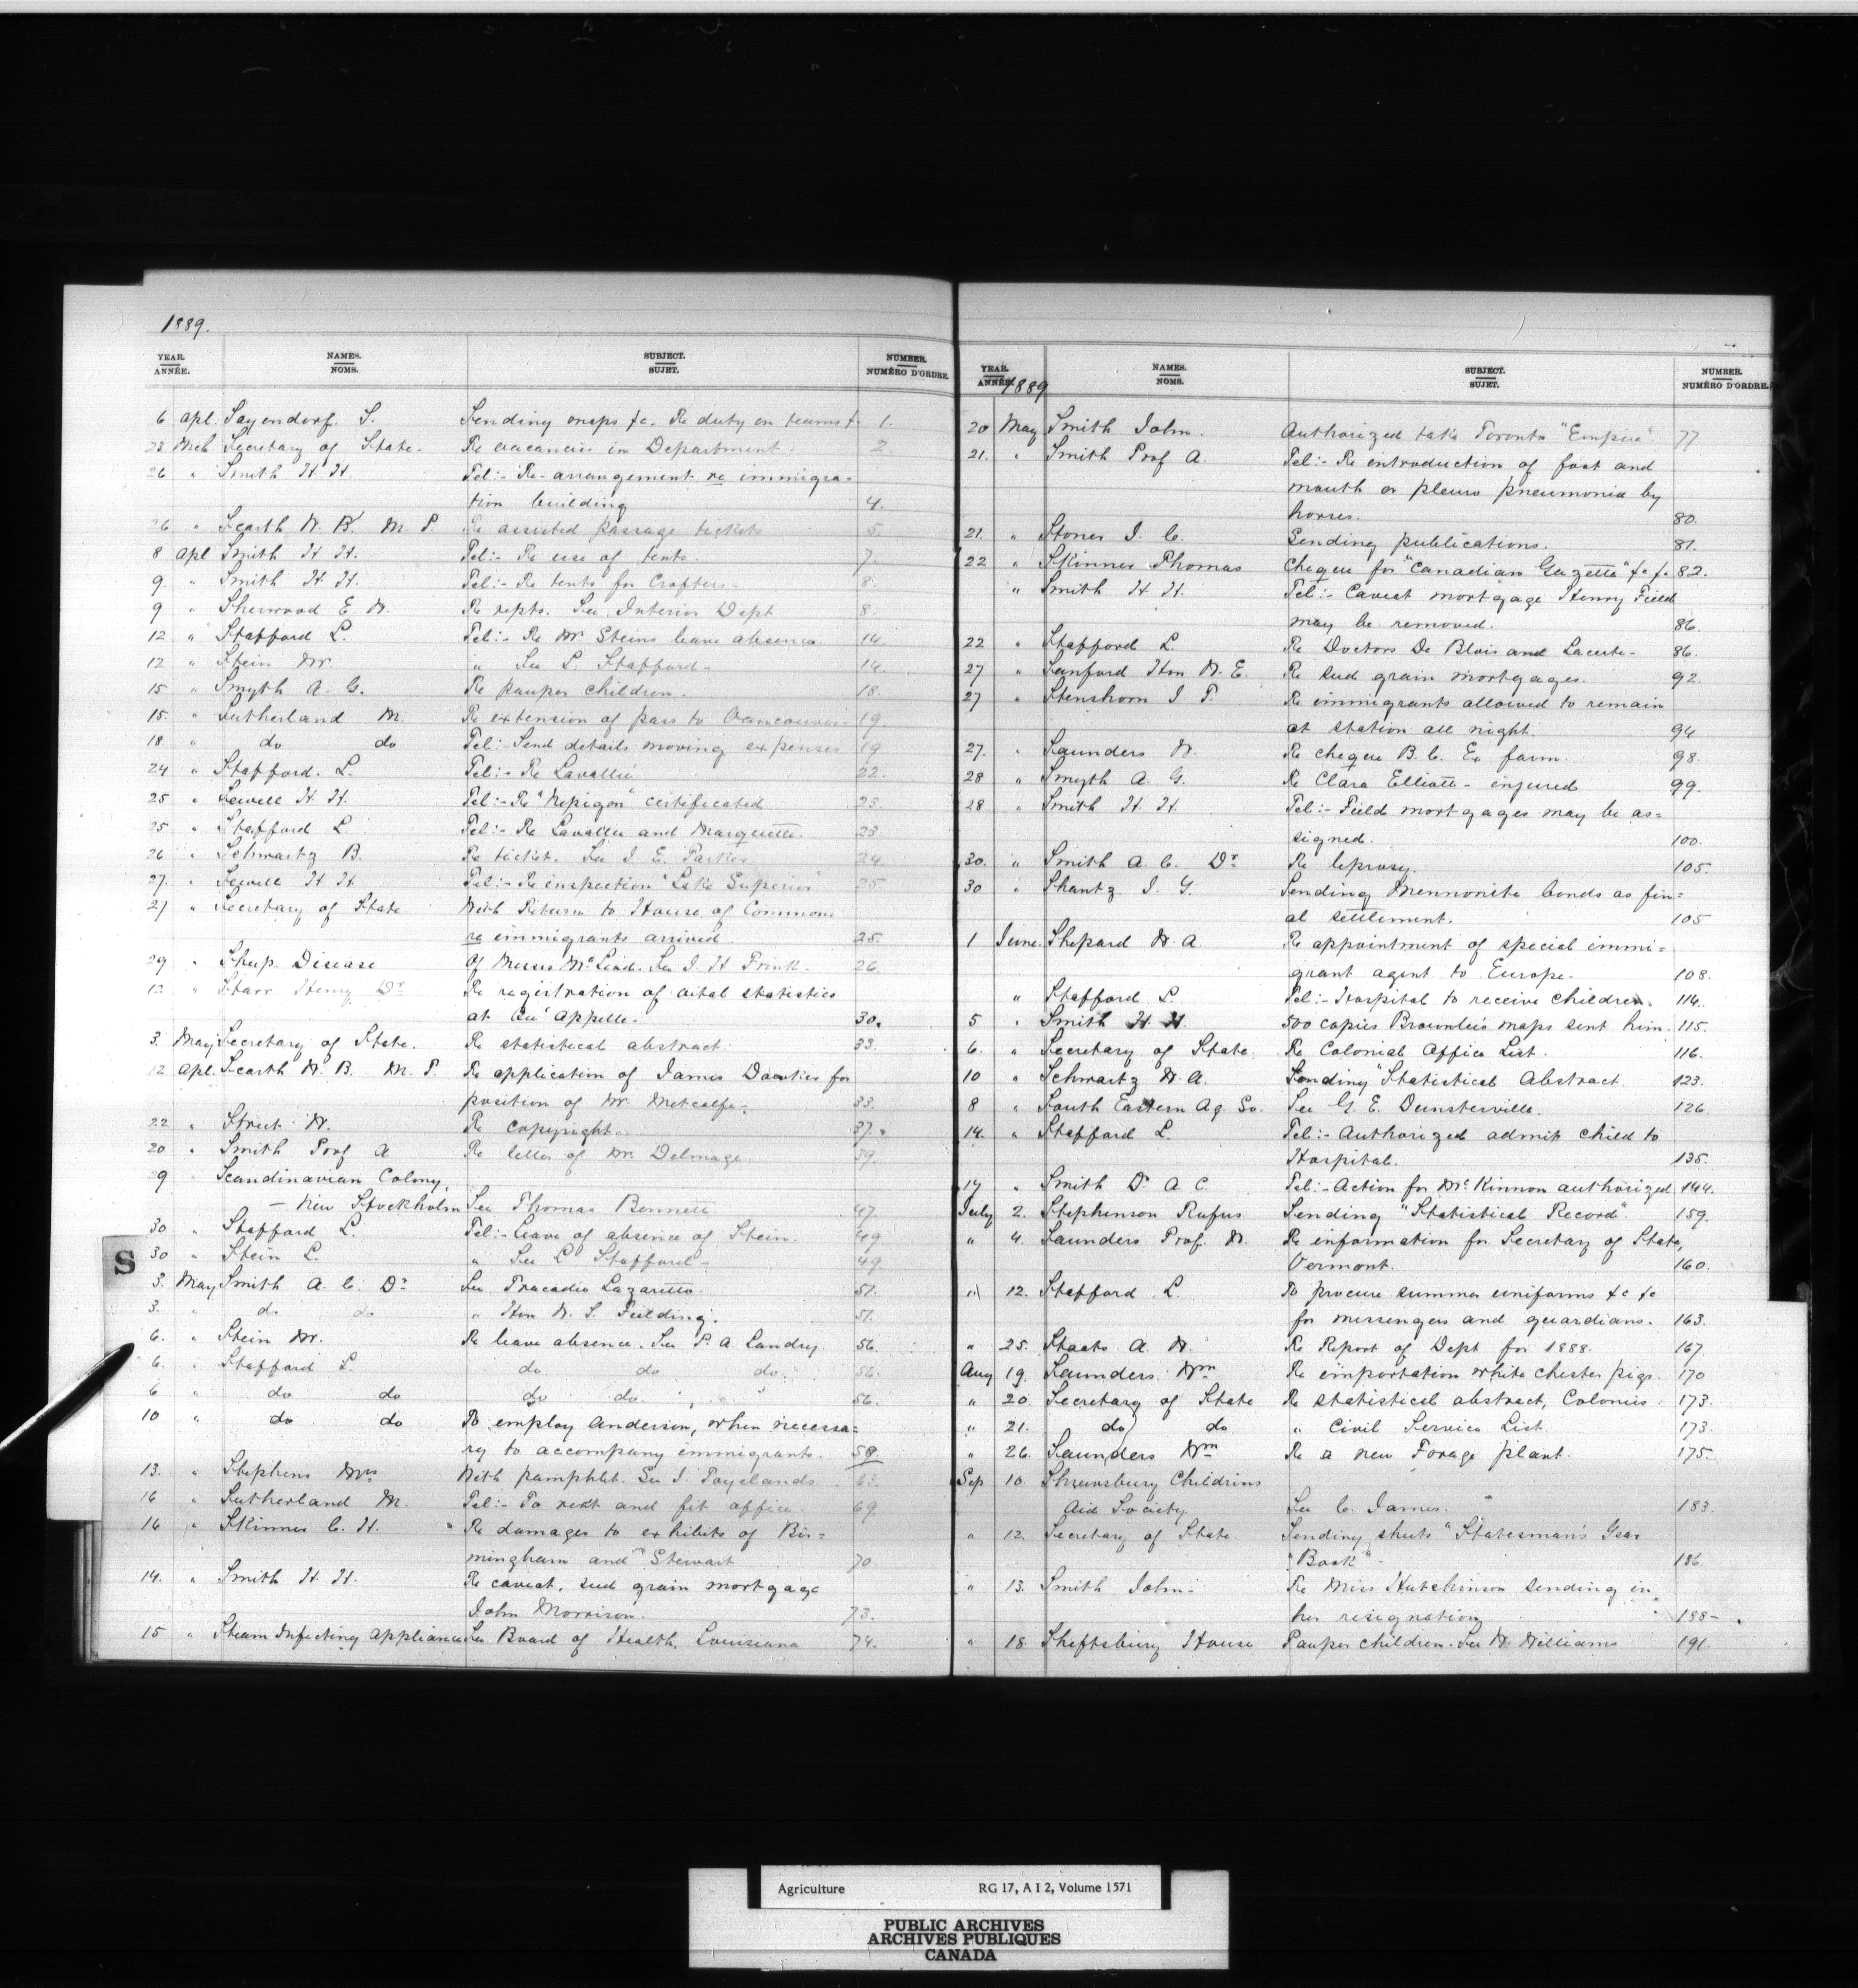 1889.
YEAR. NAMES. SUBJECT. NUMBER.
ANNÉE. NOMS. SUJET. NUMÉRO D'ORDRE.
6 Apl. Sayendorf. S. Sending maps &c. Re duty on teams &. 1.
23 Mch Secretary of State. Re vacancies in Department. 2.
26 " Smith H. H. Tel:- Re- arrangement re immigra-
tion building 4.
26 " Scarth W. B. M. P. Re assisted passage tickets 5.
8 Apl Smith H. H. Tel:- Re use of tents. 7.
9 " Smith H. H. Tel:- Re tents for Crofters- 8.
9 " Sherwood E. W. Re repts. See Interior Dept 8.
12 " Stafford L. Tel:- Re Mr Steins leave absence 14.
12 " Stein Mr. " See L. Stafford- 14.
15 " Smyth A. G. Re pauper children. 18.
15. " Sutherland M. Re extension of pass to Vancouver- 19.
18 " do do Tel:- Send details moving expenses 19
24 " Stafford. L. Tel:- Re Lavallée 22.
25 " Sewell H. H. Tel:- Re "Nepigon" certificated 23.
25 " Stafford L Tel:- Re Lavallée and Marquette. 23.
26 " Schwartz B. Re ticket. See J. E. Parker 24
27. " Sewell H. H. Tel:- Re inspection "Lake Superior" 25.
27 " Secretary of State With Return to House of Commons
re immigrants arrived. 25.
29 " Sheep Disease Of Messrs McLeod. See J. H. Frink. 26.
12 " Starr Henry Dr Re registration of vital statistics
at Qu'Appelle- 30.
3. May Secretary of State. Re statistical abstract. 33.
12 Apl. Scarth W. B. M. P. Re application of James Dawkes for
position of Mr. Metcalfe-. 33.
22 " Street W. Re copyright. 37.
20 " Smith Prof A Re letter of Mr. Delmage. 39.
29 " Scandinavian Colony,
- New Stockholm See Thomas Bennett 47.
30 " Stafford L. Tel:- Leave of absence of Stein. 49
30 " Stein L. " See L. Stafford- 49.
3. May Smith A. C. Dr See Tracadie Lazaretto. 51.
3. " do do " Hon W. S. Fielding. 51.
6. " Stein Mr. Re leave absence. See P. A. Landry 56
6. " Stafford L. do do do. 56.
6 " do do do do " " 56.
10 " do do To employ Anderson, when necessa-
ry to accompany immigrants. 58.
13. " Stephens Mrs With pamphlet. See J. Poyelands. 63.
16 " Sutherland M. Tel:- To rent and fit office. 69.
16 " Skinner C. H. " Re damages to exhibits of Bir=
mingham and "Stewart 70.
14. " Smith H. H. Re caveat, seed grain mortgage
John Morrison. 73.
15 " Steam Infecting Appliance See Board of Health, Louisiana 74.
YEAR. NAMES. SUBJECT. NUMBER.
ANNÉE. 1889 NOMS. SUJET. NUMÉRO D'ORDRE.
20 May Smith John. Authorized take Toronto "Empire" 77
21. " Smith Prof A. Tel:- Re introduction of foot and
mouth or pleuro pneumonia by
horses. 80.
21. " Stoner J. C. Sending publications. 81.
22 " Skinner Thomas Cheque for "Canadian Gazette" &c &c 82.
" Smith H. H. Tel:- Caveat mortgage Henry Field
may be removed. 86.
22 " Stafford L. Re Doctors De Blois and Lacerte- 86.
27 " Sanford Hon W. E. Re seed grain mortgages. 92.
27 " Stenshorn J. F. Re immigrants allowed to remain
at station all night. 94
27. " Saunders W. Re cheque B. C. Ex farm. 98.
28 " Smyth A. G. Re Clara Elliott- injured 99.
28 " Smith H. H. Tel:- Field mortgages may be as=
signed. 100.
30. " Smith A. C. Dr Re leprosy. 105.
30 " Shantz J. Y. Sending Mennonite bonds as fin=
al settlement. 105
1 June. Shepard W. A. Re appointment of special immi=
grant agent to Europe- 108.
" Stafford L. Tel:- Hospital to receive children. 114.
5 " Smith H. H. 500 copies Brownlee's maps sent him. 115.
6. " Secretary of State. Re Colonial Office List. 116.
10 " Schwartz W. A. Sending "Statistical Abstract 123.
8 " South Eastern Ag. So. See G. E. Dunsterville. 126
14. " Stafford L. Tel:- Authorized admit child to
Hospital. 135.
17 " Smith Dr A C. Tel:- Action for McKinnon authorized 144.
July 2. Stephenson Rufus Sending "Statistical Record". 159.
" 4. Saunders Prof. W. Re information for Secretary of State,
Vermont. 160.
" 12. Stafford L. To procure summer uniforms &c &c
for messengers and guardians. 163.
" 25. Staats A. W. Re Report of Dept for 1888. 167.
Aug 19. Saunders Wm Re importation white chester pigs. 170
" 20. Secretary of State Re statistical abstract, Colonies. 173.
" 21. do do " Civil Service List. 173.
" 26. Saunders Wm Re a new Forage plant. 175.
Sep 10. Shrewsbury Childrens
Aid Society. See C. James. 183
" 12. Secretary of State Sending sheets "Statesman's Year
"Book"- 186.
" 13. Smith John- Re Miss Hutchinson sending in
her resignation 188-
" 18. Sheftsbury House Pauper children. See W. Williams 191.
S
Agriculture RG 17, A I 2, Volume 1571
PUBLIC ARCHIVES
ARCHIVES PUBLIQUES
CANADA